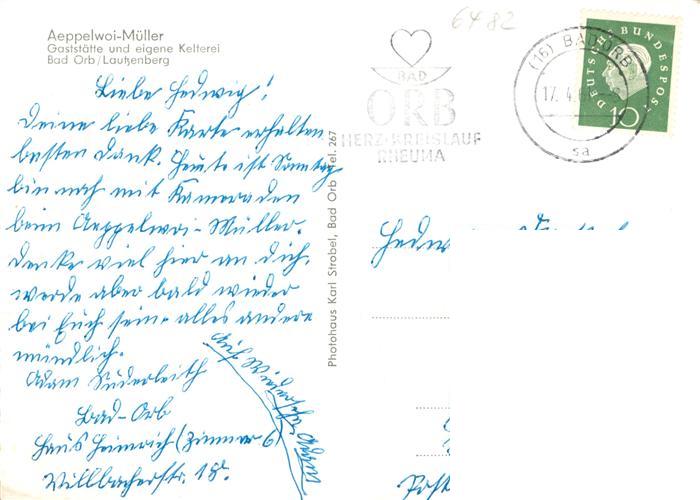 Aeppelwoi-Müller
Gaststätte und eigene Kelterei
Bad Orb/Lautzenberg
6482
BAD
ORB
HERZ·KREISLAUF
RHEUMA
(16) BAD ORB
17.4.6
sa
DEUTSCHE BUNDESPOST
10
Liebe Hedwig!
Deine liebe Karte erhalten
besten Dank. Heute ist Sonntag
bin noch mit Kameraden
beim Aeppelwoi-Müller.
Denke viel hier an dich,
werde aber bald wieder
bei Euch sein. alles andere
mündlich.
Adam Süderleith
Bad-Orb
Haus Heinrich (Zimmer 6)
Villbacherstr. 18.
Auf Wiedersehen Adam
Photohaus Karl Strobel, Bad Orb Tel. 267
Hedw
Post